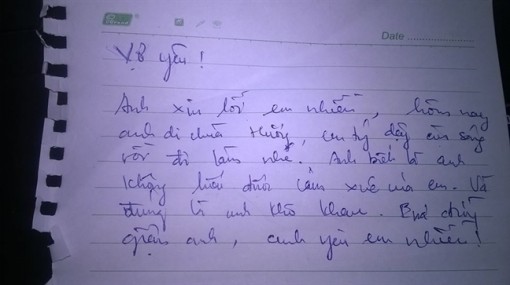 Date
Vợ yêu!
Anh xin lỗi em nhiều, hôm nay
anh đi chùa Hương, em tự dậy ăn sáng
rồi đi làm nhé. Anh biết là anh
không hiểu được cảm xúc của em. Và
đúng là anh khô khan. Bà đừng
giận anh, anh yêu em nhiều!